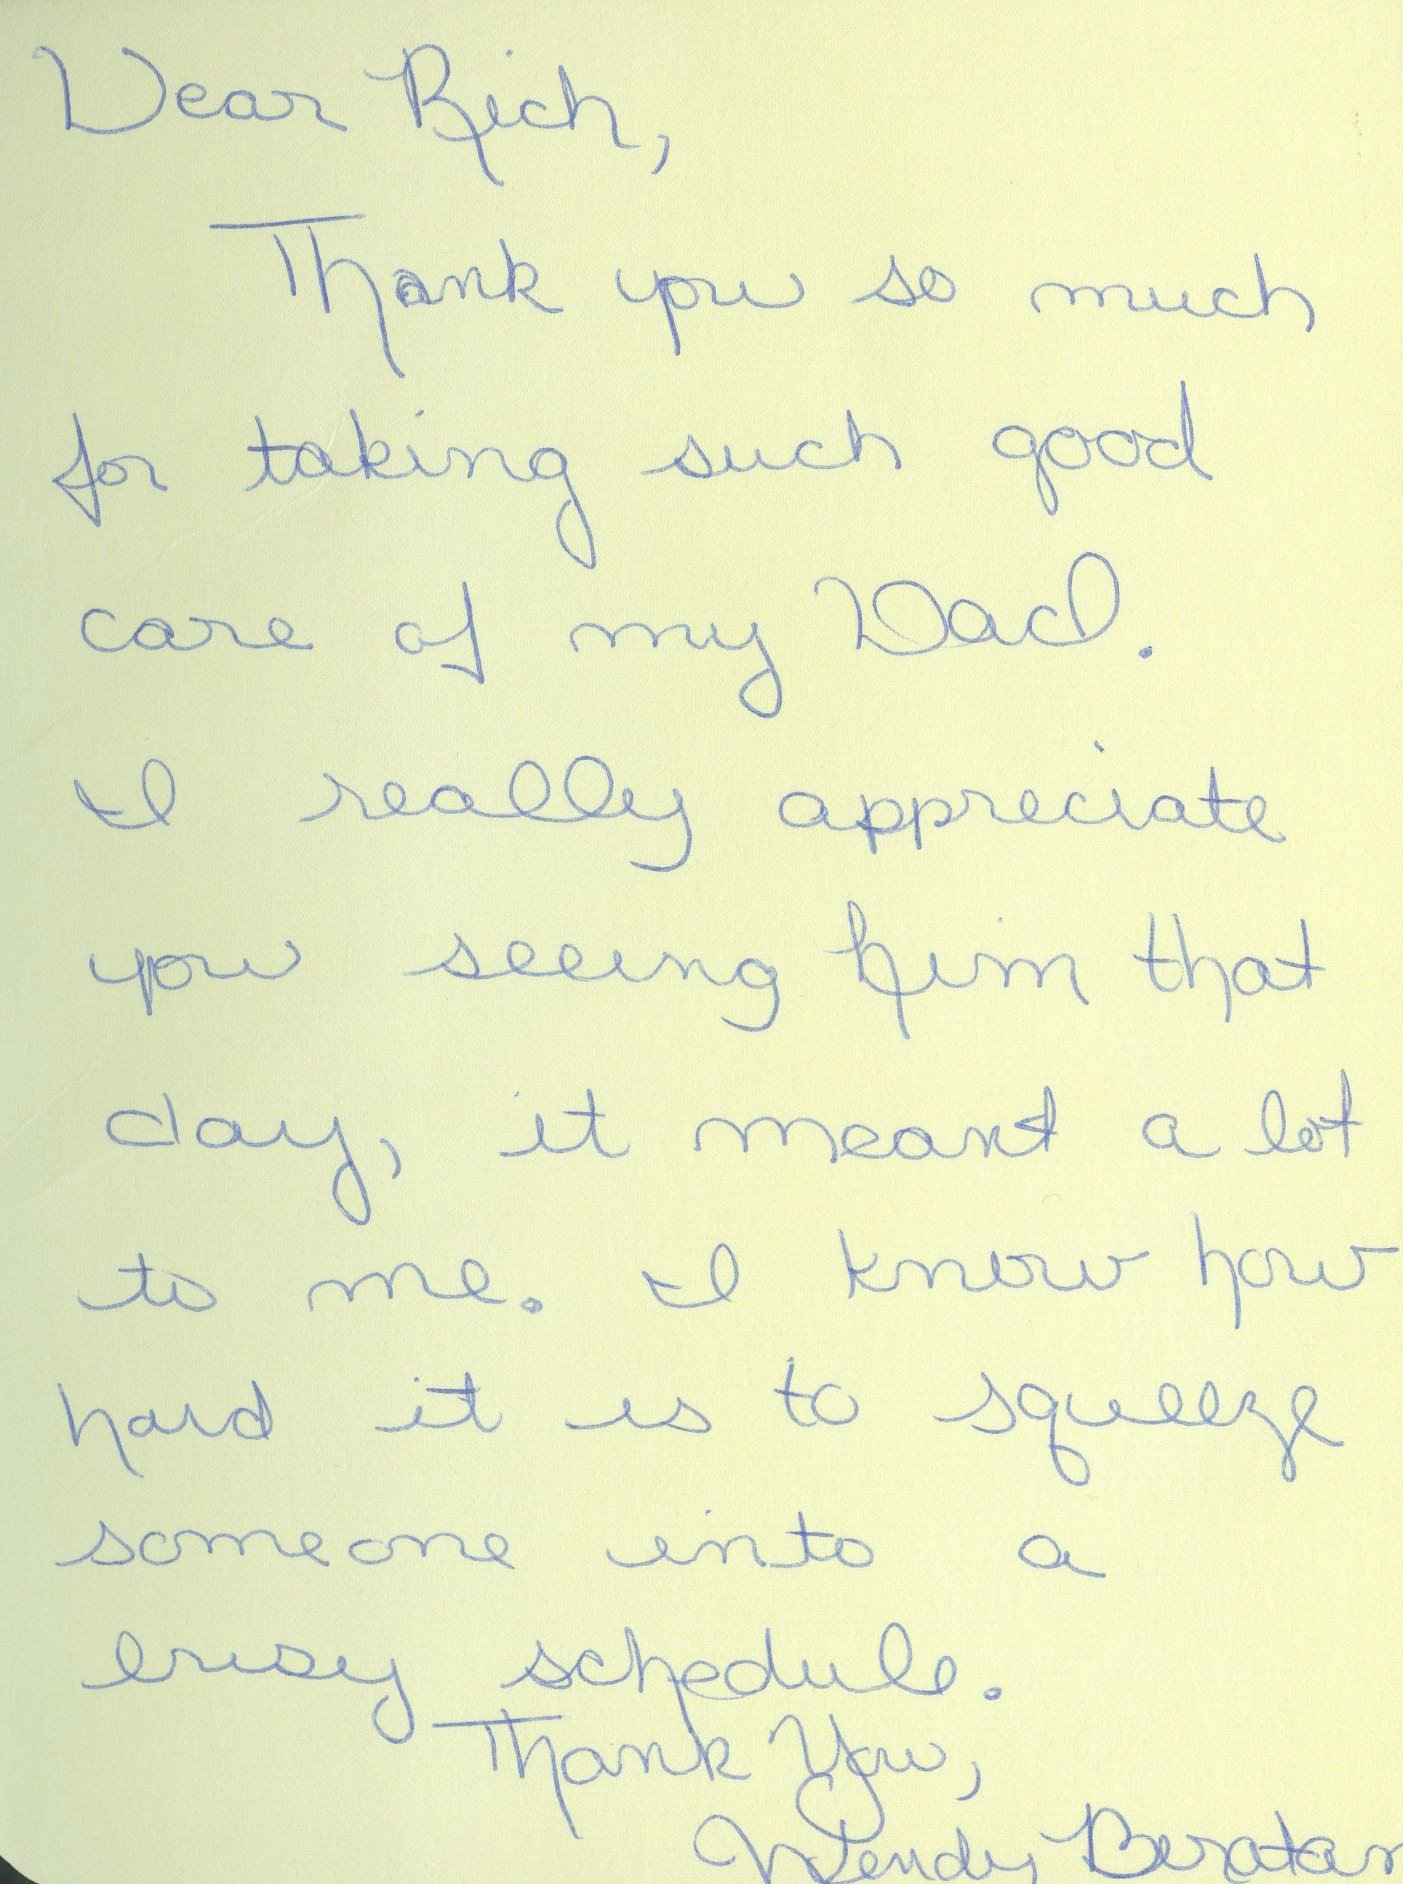 Dear Rich,
Thank you so much
for taking such good
care of my Dad.
I really appreciate
you seeing him that
day, it meant a lot
to me. I know how
hard it is to squeeze
someone into a
busy schedule.
Thank You,
Wendy Beratan